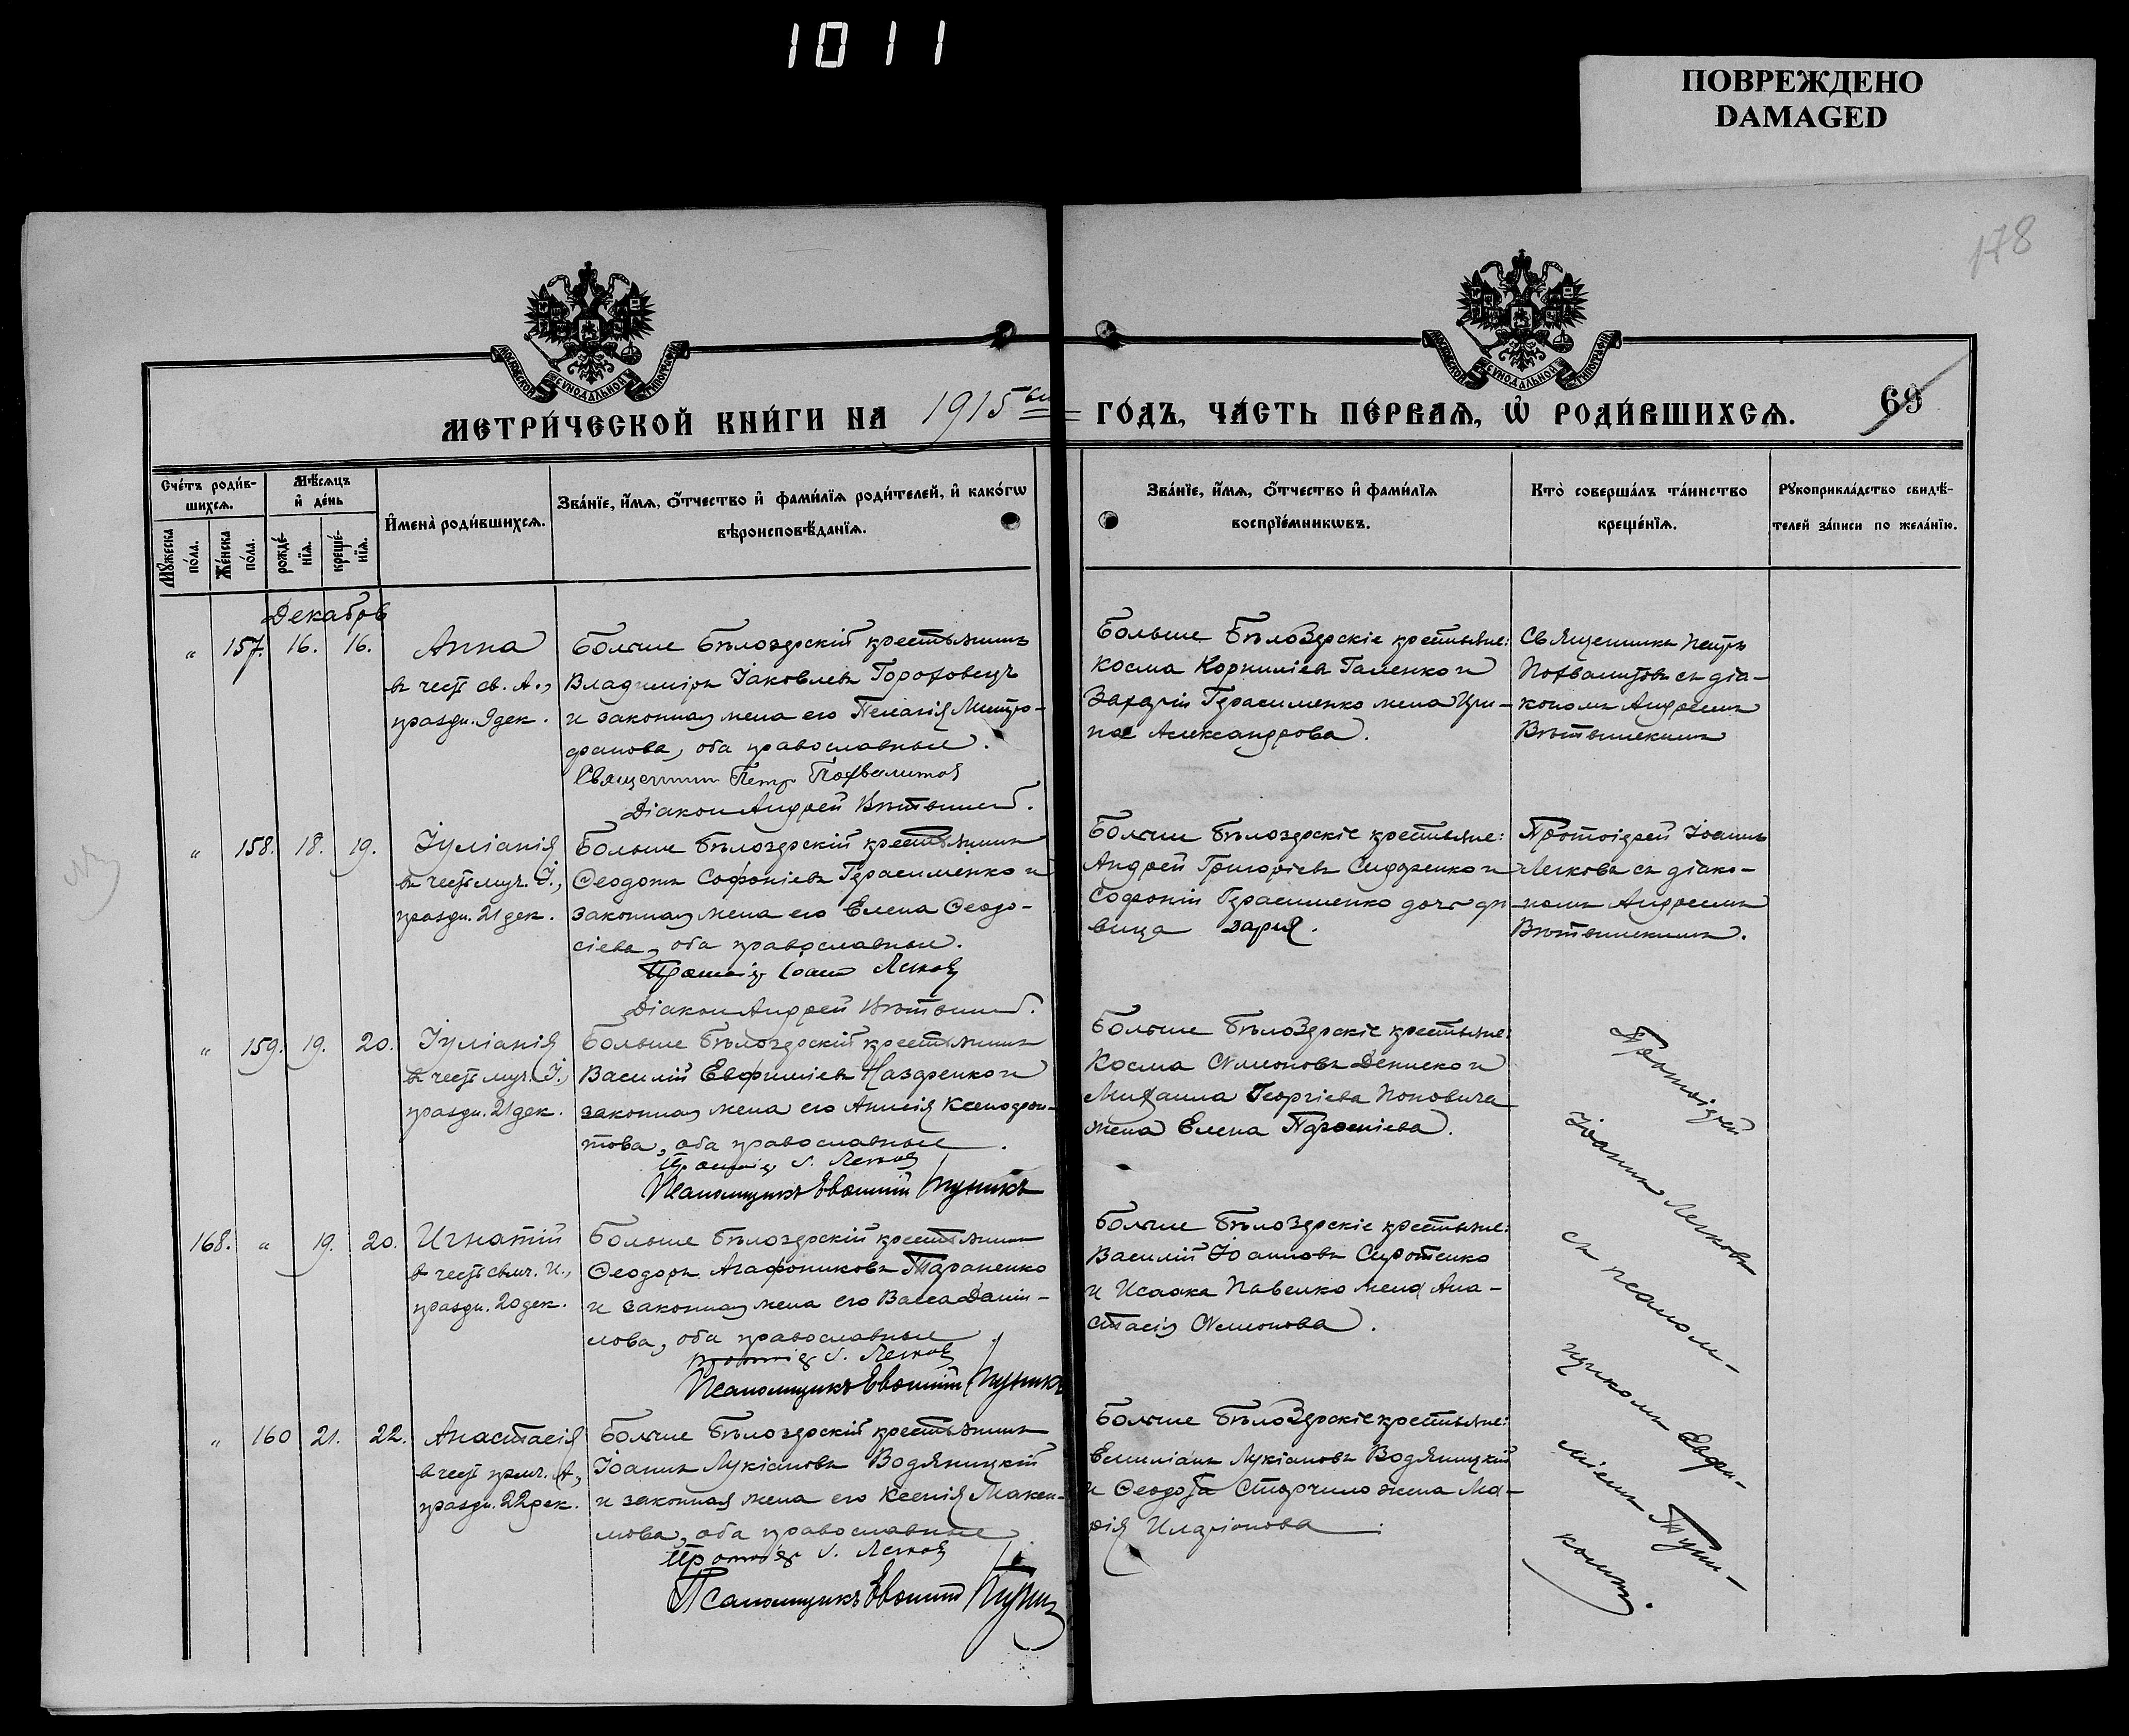 1011
ПОВРЕЖДЕНО
DAMAGED
178
МОСКОВСКОЙ СѴНОДАЛЬНОЙ ТИПОГРАФІИ
МОСКОВСКОЙ СѴНОДАЛЬНОЙ ТИПОГРАФІИ
МЕТРИ́ЧЕСКОЙ КНИ́ГИ НА 1915 ГО́ДЪ, ЧА́СТЬ ПЕ́РВАѦ, Ѽ РОДИ́ВШИХСѦ.
69
Сче́тъ роди́в-
шихсѧ.
Мꙋ́жеска по́ла.
Же́нска по́ла.
Мѣ́сѧцъ и҆ де́нь
рожде́-
нїѧ.
креще́-
нїѧ.
И҆мена̀ роди́вшихсѧ.
Зва́нїе, и҆́мѧ, ѻ҆́тчество и҆ фами́лїѧ роди́телей, и҆ како́гѡ
вѣроисповѣ́данїѧ.
Зва́нїе, и҆́мѧ, ѻ҆́тчество и҆ фами́лїѧ
воспрїе́мникѡвъ.
Кто̀ соверша́лъ та́инство
креще́нїѧ.
Рꙋкоприкла́дство свидѣ́-
телей за́писи по жела́нїю.
Декабрь
" 157. 16. 16.
Анна
въ честь св. А.,
праздн. 9 дек.
Больше Бѣлозерскій крестьянинъ
Владиміръ Іаковлевъ Гороховецъ
и законная жена его Пелагія Митро-
фанова, оба православные.
Священникъ Петръ Похвалитовъ
Діаконъ Андрей
Больше Бѣлозерскіе крестьяне:
Косма Корниліевъ Галенко и
Захарій Герасименко жена Ири-
на Александрова.
Священникъ Петръ
Похвалитовъ съ діа-
кономъ Андреемъ
" 158. 18. 19.
Іуліанія
въ честь муч. І.,
праздн. 21 дек.
Больше Бѣлозерскій крестьянинъ
Ѳеодотъ Софоніевъ Герасименко и
законная жена его Елена Ѳеодо-
сіева, оба православные.
Протоіер Іоаннъ Легковъ
Діаконъ Андрей
Больше Бѣлозерскіе крестьяне:
Андрей Григоріевъ Сидоренко и
Софоній Герасименко дочь дѣ-
вица Дарія.
Протоіерей Іоаннъ
Легковъ съ діако-
номъ Андреемъ
" 159. 19. 20.
Іуліанія
въ честь муч. І.,
праздн. 21 дек.
Больше Бѣлозерскій крестьянинъ
Василій Евфиміевъ Назаренко и
законная жена его Анисія Ксенофон-
това, оба православные.
Протоіер І. Легковъ
Псаломщикъ Евфимій Пуникъ
Больше Бѣлозерскіе крестьяне:
Косма Симоновъ Денисенко и
Михаила Георгіева Поповича
жена Елена
168. " 19. 20.
Игнатій
въ честь свмч. И.,
праздн. 20 дек.
Больше Бѣлозерскій крестьянинъ
Ѳеодоръ Агафониковъ Тараненко
и законная жена его Васса Дани-
лова, оба православные.
Протоіер І. Легковъ
Псаломщикъ Евфимій Пуникъ
Больше Бѣлозерскіе крестьяне:
Василій Іоанновъ Сиротенко
и Исаака Павенко жена Ана-
стасія Симонова.
" 160 21. 22.
Анастасія
въ честь прмч. А.,
праздн. 22 дек.
Больше Бѣлозерскій крестьянинъ
Іоаннъ Лукіановъ Водяницкій
и законная жена его Ксенія Макси-
мова, оба православные
Протоіер І. Легковъ
Псаломщикъ Евфимій
Больше Бѣлозерскіе крестьяне:
Емиліанъ Лукіановъ Водяницкій
и Ѳеодора Сторчило жена Ма-
рія Иларіонова.
Протоіерей
Іоаннъ Легковъ
съ псалом-
щикомъ Евфи-
міемъ Пуни-
комъ.